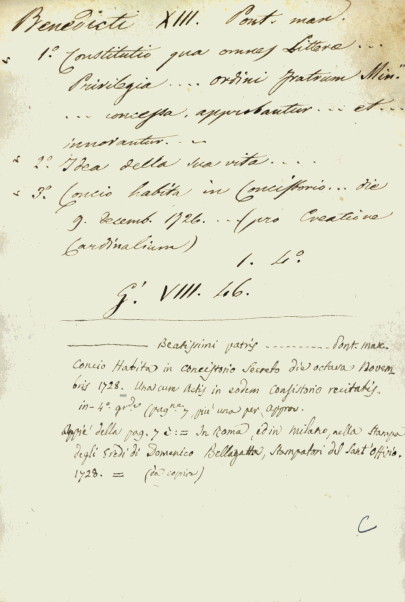 Benedicti XIII. Pont. max.
1.º Constitutio qua omnes Litterae ...
Privilegia .... ordini fratrum Min.
... concessa, approbantur ... et
innovantur. ..
2.º Idea della sua vita ....
3.º Concio habita in Concistorio ... die
9. decemb. 1726. ... (pro Creatione
Cardinalium)
1. 4.º
G. VIII. 46.
Beatissimi patris ---------- Pont. max.
Concio Habita in concistorio Secreto die octava Novem-
bris 1728. Una cum Actis in eodem Consistorio recitatis.
in-4.º gr.de (pag.ne 7, più una per approv.
Appie' della pag. 7 è: = In Roma, ed in milano, nella Stampa
degli Eredi di Domenico Bellagatta, Stampatori del Sant'Offizio.
1728. = (da copiare)
C